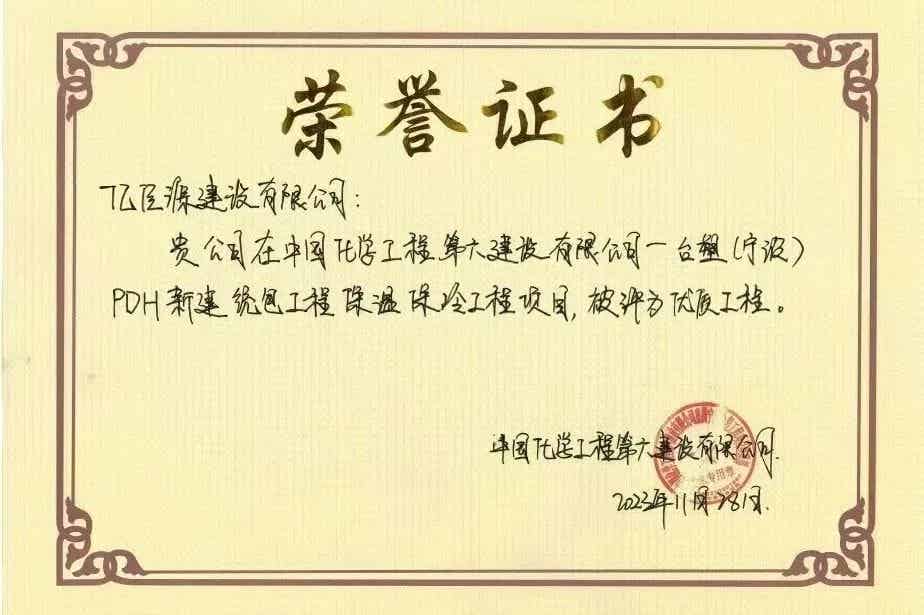 荣誉证书
亿臣源建设有限公司：
贵公司在中国化学工程第六建设有限公司一台塑（宁波）
PDH新建统包工程保温保冷工程项目，被评为优质工程。
中国化学工程第六建设有限公司.
2023年11月28日.
专用章